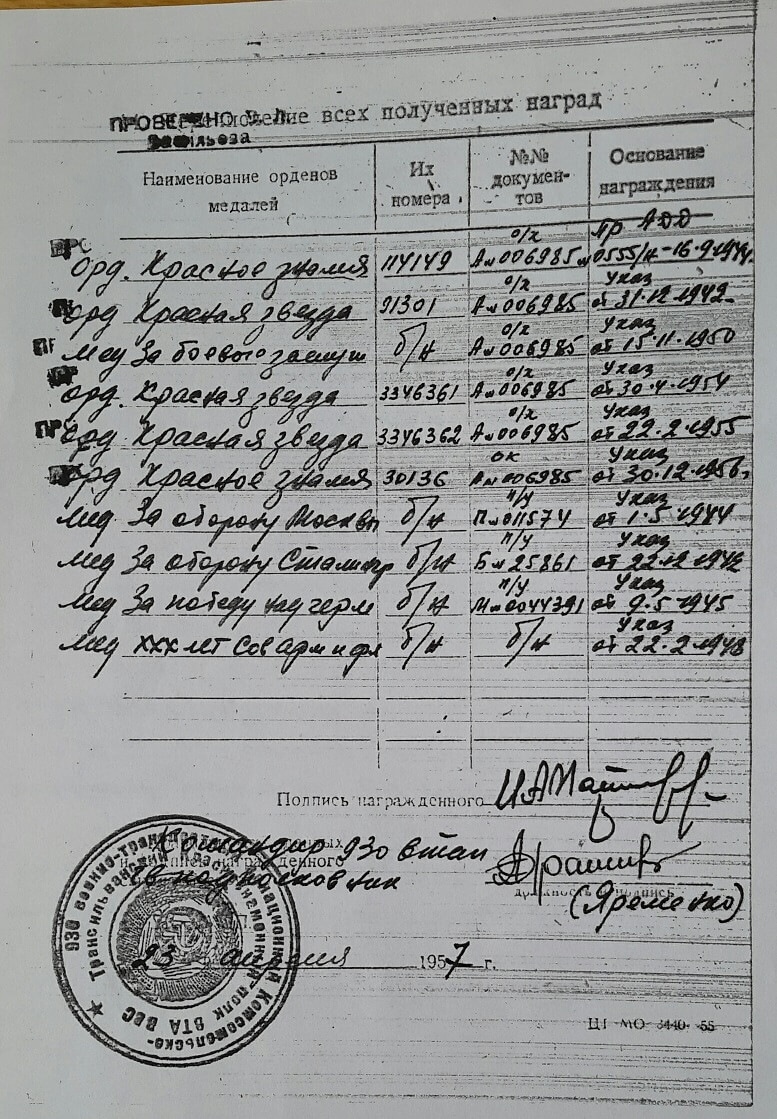 ПРОВЕРЕНО В. Л.
всех полученных наград
Васильева
Наименование орденов медалей
Их номера
№№ документов
Основание награждения
о/к Пр АДД
орд. Красное знамя 114149 А№006985 №0555/н-16.9.1944.
о/к Указ
орд Красная звезда 91301 А№006985 от 31.12.1942
о/к Указ
мед За боевые заслуги б/н А№006985 от 15.11.1950
о/к Указ
орд. Красная звезда 3346361 А№006985 от 30.4.1954
о/к Указ
орд Красная звезда 3346362 А№006985 от 22.2.1955
ок Указ
орд Красное знамя 30136 А№006985 от 30.12.1956г
п/у Указ
мед За оборону Москвы б/н П№011574 от 1.5.1944
п/у Указ
мед За оборону Сталингр б/н Б№25861 от 22.12.1942
п/у Указ
мед За победу над герм б/н М№0044391 от 9.5.1945
Указ
мед ХХХ лет Сов арм и фл б/н б/н от 22.2.1948
Подпись награжденного
Командир 930 втап
гв подполковник
(Яременко)
23 1957 г.
930 военно-транс ационный Комсомольско-
Трансильванский Краснознаменный полк ВТА ВВС
ЦТ МО 3440-55